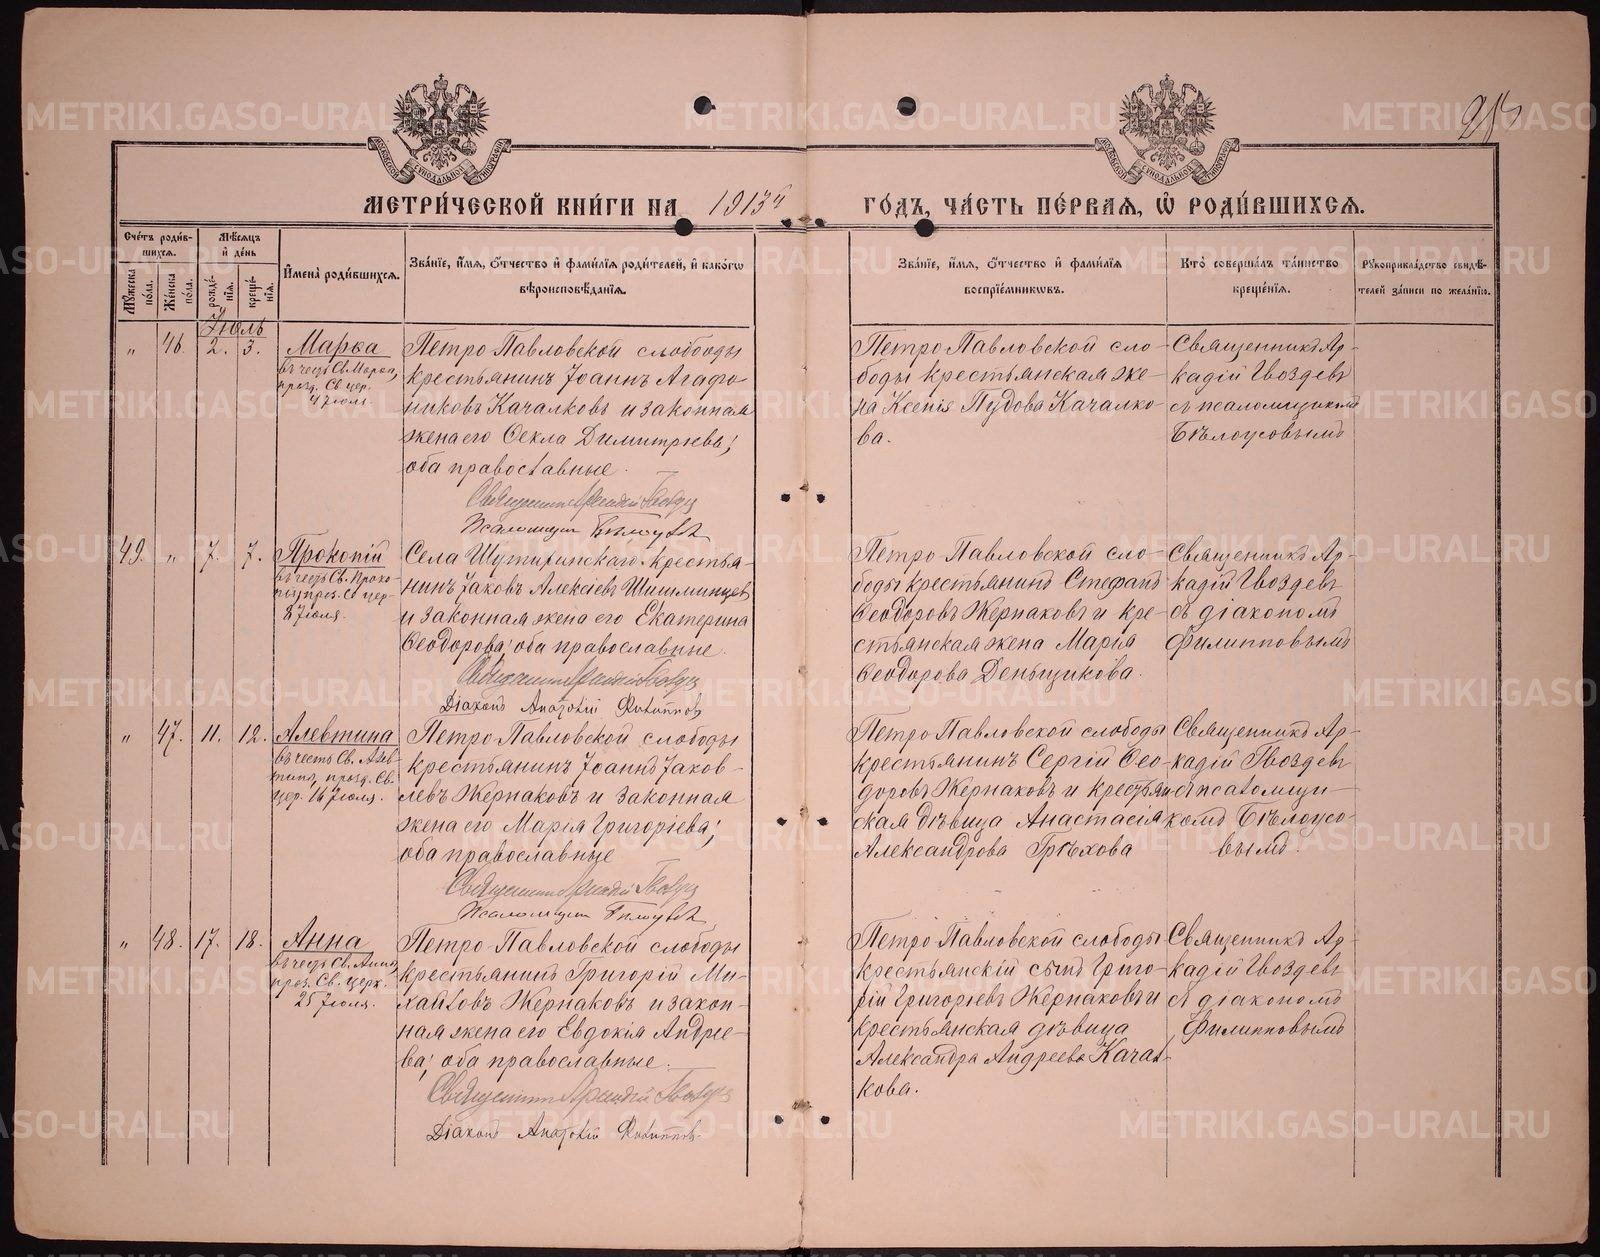 МЕТРИ́ЧЕСКОЙ КНИ́ГИ НА 1913й ГО́ДЪ, ЧА́СТЬ ПЕ́РВАЯ, Ѡ РОДИ́ВШИХСЯ.
Сче́тъ роди́вшихся.
Мꙋжеска по́ла.
Же́нска по́ла.
Мѣ́сяцъ и де́нь
рожде́нїя.
креще́нїя.
И҆мена̀ роди́вшихся.
Зва́нїе, и҆́мя, ѻ҆́тчество и҆ фами́лїя роди́телей, и҆ како́гѡ
вѣроисповѣ́данїя.
Зва́нїе, и҆́мя, ѻ҆́тчество и҆ фами́лїя
воспрїе́мникѡвъ.
Кто̀ соверша́лъ та́инство
креще́нїя.
Рꙋкоприкла́дство свидѣ́-
телей за́писи по жела́нїю.
Іюль
„ 46. 2. 3.
Марѳа
въ честь Св. Марѳы,
празд. Св. цер.
4 Іюля.
Петро Павловской слободы
крестьянинъ Іоаннъ Агафо-
никовъ Качалковъ и законная
жена его Ѳекла Димитріева;
оба православные.
Священникъ Аркадій Гвоздевъ
Псаломщикъ Бѣлоусовъ
Петро Павловской сло-
боды крестьянская же-
на Ксенія Пудова Качалко-
ва.
Священникъ Ар-
кадій Гвоздевъ
съ псаломщикомъ
Бѣлоусовымъ
49. „ 7. 7.
Прокопій
въ честь Св. Проко-
пія, праз. Св. цер-
8 Іюля.
Села Шутинскаго крестья-
нинъ Іаковъ Алексіевъ Шишминцевъ
и законная жена его Екатерина
Ѳеодорова; оба православные.
Священникъ Аркадій Гвоздевъ
Діаконъ Анатолій Филипповъ
Петро Павловской сло-
боды крестьянинъ Стефанъ
Ѳеодоровъ Жернаковъ и кре-
стьянская жена Марія
Ѳеодорова Деньщикова.
Священникъ Ар-
кадій Гвоздевъ
съ діакономъ
Филипповымъ
„ 47. 11. 12.
Алевтина
въ честь Св. Алев-
тины, празд. Св.
цер. 16 Іюля.
Петро Павловской слободы
крестьянинъ Іоаннъ Іаков-
левъ Жернаковъ и законная
жена его Марія Григоріева;
оба православные
Священникъ Аркадій Гвоздевъ
Псаломщикъ Бѣлоусовъ
Петро Павловской слободы
крестьянинъ Сергій Ѳео-
доровъ Жернаковъ и крестьян-
ская дѣвица Анастасія
Александрова Грѣхова
Священникъ Ар-
кадій Гвоздевъ
съ псаломщи-
комъ Бѣлоусо-
вымъ.
„ 48. 17. 18.
Анна
въ честь Св. Анны,
праз. Св. церк.
25 Іюля.
Петро-Павловской слободы
крестьянинъ Григорій Ми-
хайловъ Жернаковъ и закон-
ная жена его Евдокія Андрее-
ва; оба православные.
Священникъ Аркадій Гвоздевъ
Діаконъ Анатолій Филипповъ.
Петро Павловской слободы
крестьянскій сынъ Григо-
рій Григоріевъ Жернаковъ и
крестьянская дѣвица
Александра Андреева Качал-
кова.
Священникъ Ар-
кадій Гвоздевъ
съ діакономъ
Филипповымъ
METRIKI.GASO-URAL.RU